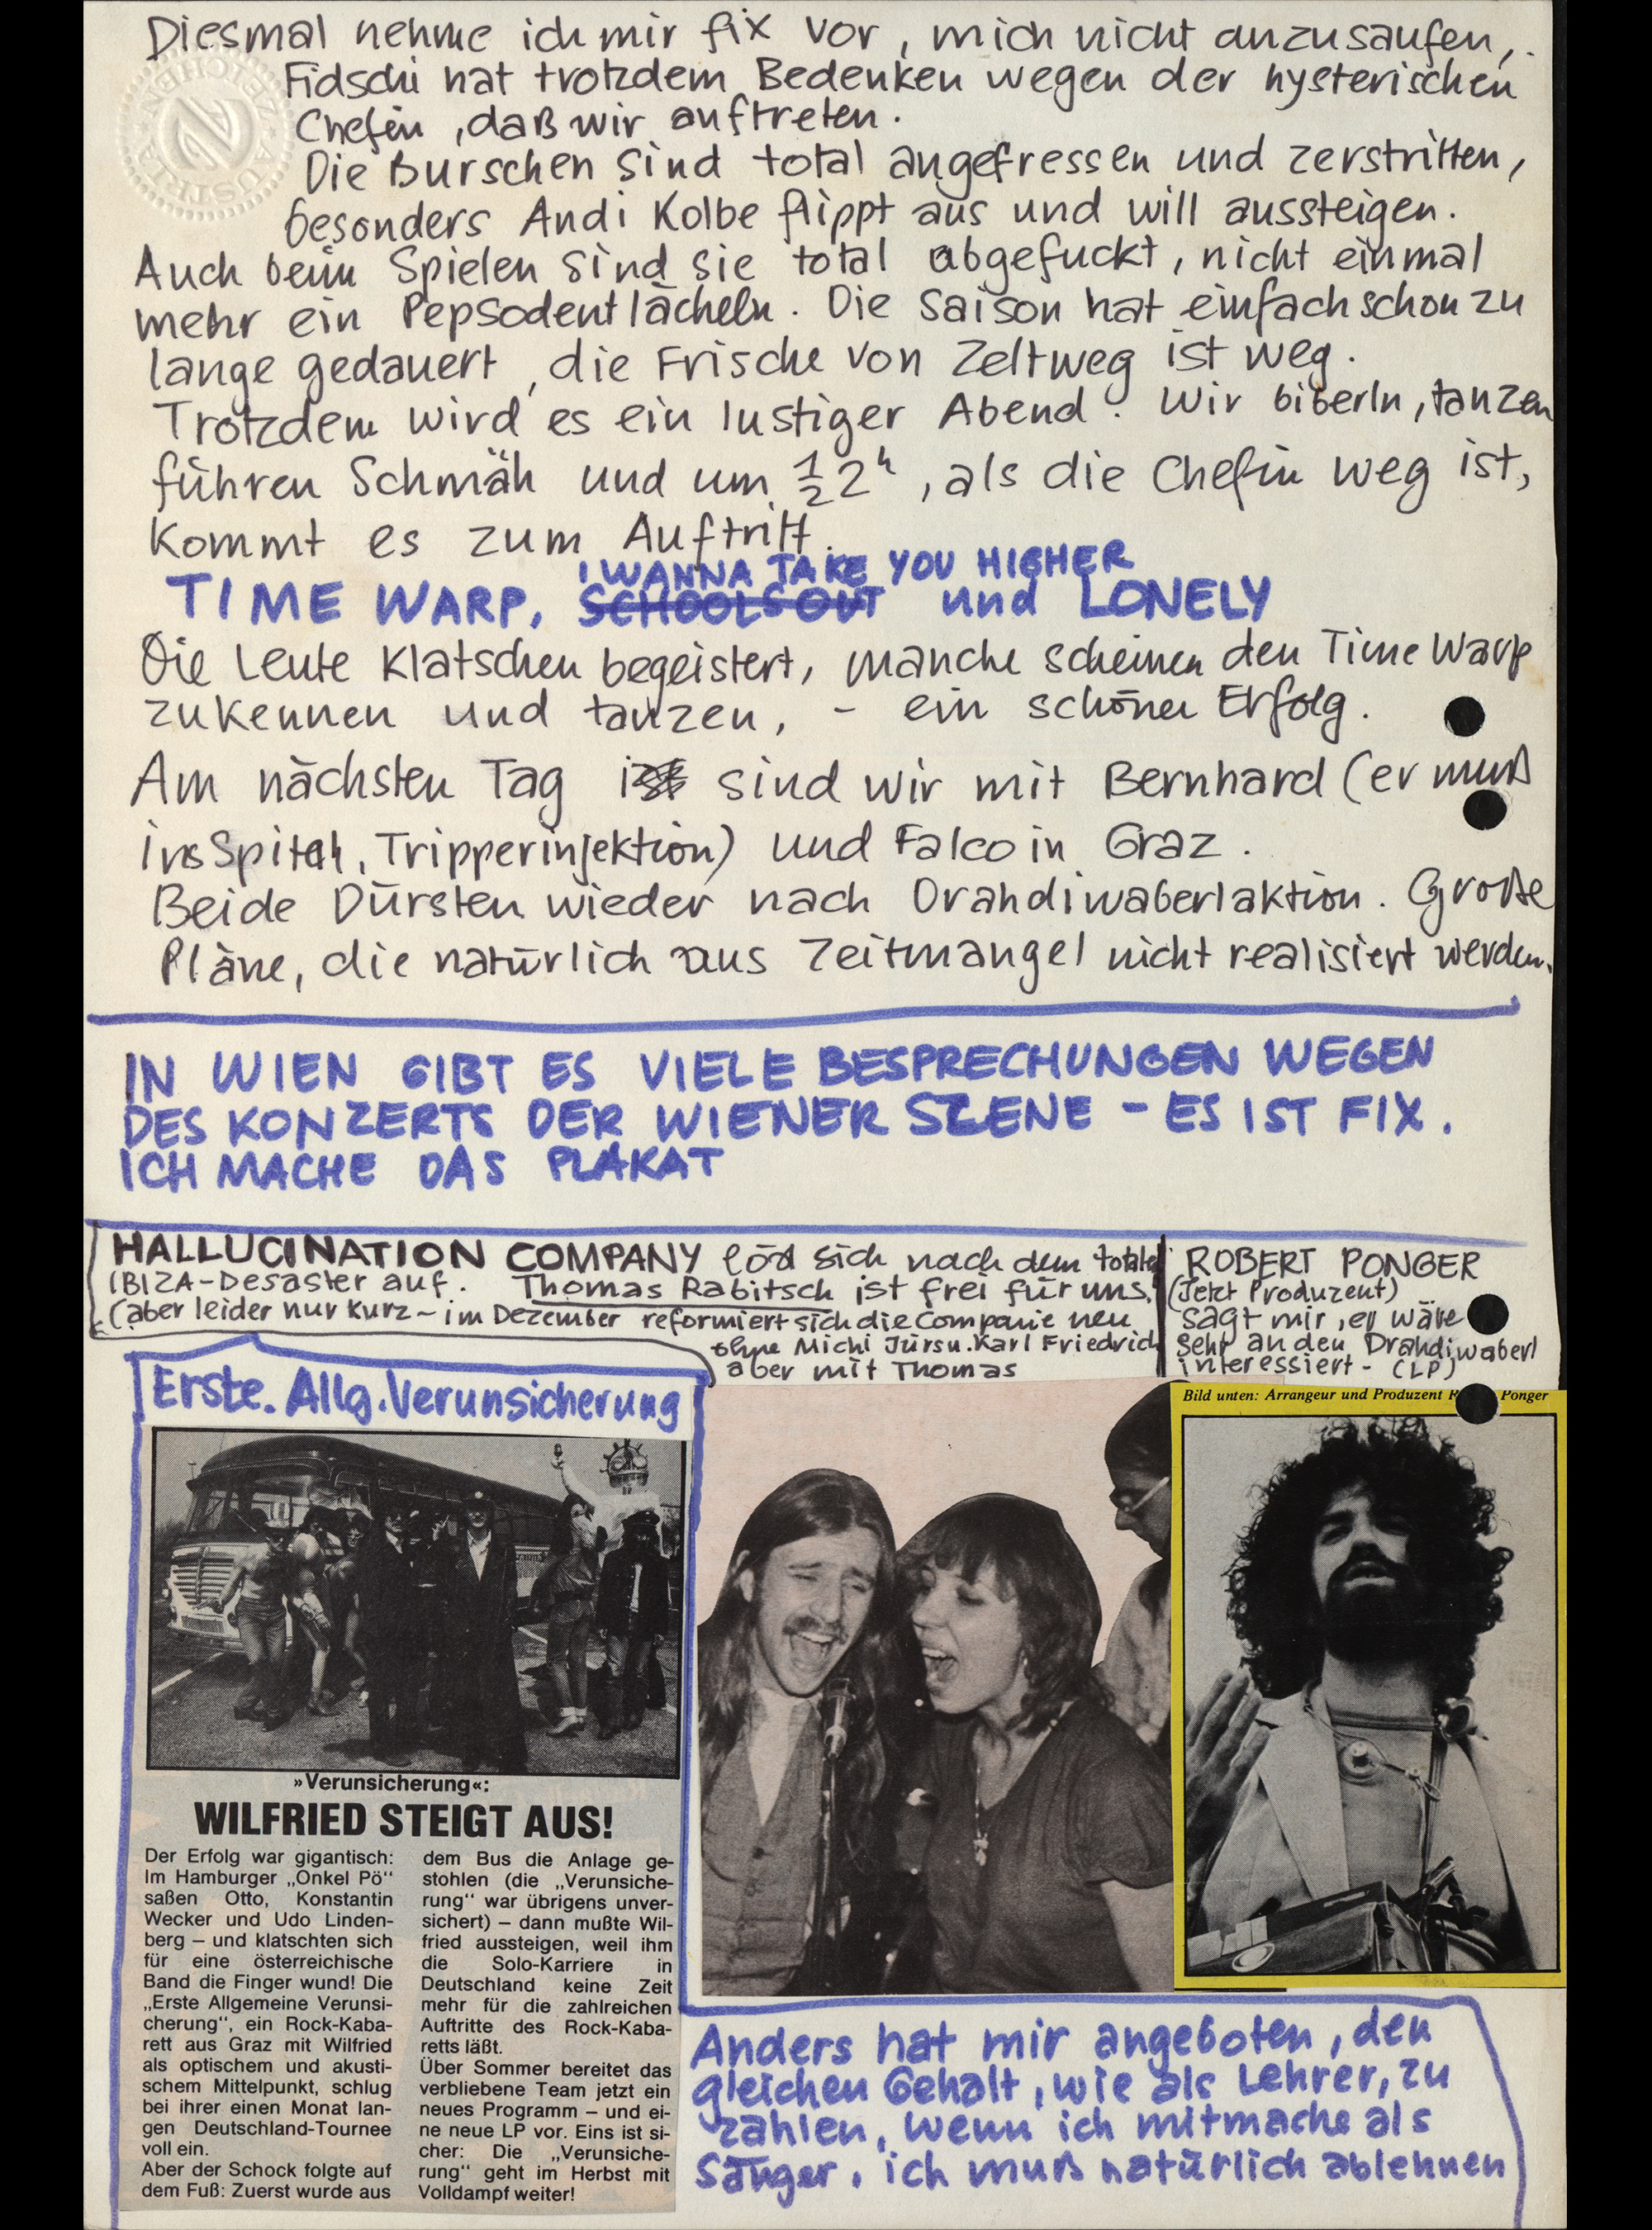 Diesmal nehme ich mir fix vor, mich nicht anzusaufen,
Fidschi hat trotzdem Bedenken wegen der hysterischen
Chefin, daß wir auftreten.
Die Burschen sind total angefressen und zerstritten,
besonders Andi Kolbe flippt aus und will aussteigen.
Auch beim Spielen sind sie total abgefuckt, nicht einmal
mehr ein Pepsodentlächeln. Die Saison hat einfach schon zu
lange gedauert, die Frische von Zeltweg ist weg.
Trotzdem wird es ein lustiger Abend. Wir biberln, tanzen
führen Schmäh und um ½2h, als die Chefin weg ist,
kommt es zum Auftritt.
I WANNA TAKE YOU HIGHER
TIME WARP, SCHOOLS OUT und LONELY
Die Leute klatschen begeistert, manche scheinen den Time Warp
zukennen und tanzen, - ein schöner Erfolg.
Am nächsten Tag ist sind wir mit Bernhard (er muß
ins Spital, Tripperinjektion) und Falco in Graz.
Beide Dürsten wieder nach Drahdiwaberlaktion. Große
Pläne, die natürlich aus Zeitmangel nicht realisiert werden.
IN WIEN GIBT ES VIELE BESPRECHUNGEN WEGEN
DES KONZERTS DER WIENER SZENE - ES IST FIX.
ICH MACHE DAS PLAKAT
HALLUCINATION COMPANY löst sich nach dem totalen
IBIZA-Desaster auf. Thomas Rabitsch ist frei für uns.
(aber leider nur kurz - im Dezember reformiert sich die Companie neu
ohne Michi Jürsu. Karl Friedrich
aber mit Thomas
ROBERT PONGER
(Jetzt Produzent)
sagt mir, er wäre
sehr an den Drahdiwaberl
interessiert - (LP)
Erste. Allg. Verunsicherung
Bild unten: Arrangeur und Produzent Ponger
»Verunsicherung«:
WILFRIED STEIGT AUS!
Der Erfolg war gigantisch:
Im Hamburger „Onkel Pö“
saßen Otto, Konstantin
Wecker und Udo Linden-
berg – und klatschten sich
für eine österreichische
Band die Finger wund! Die
„Erste Allgemeine Verunsi-
cherung“, ein Rock-Kaba-
rett aus Graz mit Wilfried
als optischem und akusti-
schem Mittelpunkt, schlug
bei ihrer einen Monat lan-
gen Deutschland-Tournee
voll ein.
Aber der Schock folgte auf
dem Fuß: Zuerst wurde aus
dem Bus die Anlage ge-
stohlen (die „Verunsiche-
rung“ war übrigens unver-
sichert) – dann mußte Wil-
fried aussteigen, weil ihm
die Solo-Karriere in
Deutschland keine Zeit
mehr für die zahlreichen
Auftritte des Rock-Kaba-
retts läßt.
Über Sommer bereitet das
verbliebene Team jetzt ein
neues Programm – und ei-
ne neue LP vor. Eins ist si-
cher: Die „Verunsiche-
rung“ geht im Herbst mit
Volldampf weiter!
Anders hat mir angeboten, den
gleichen Gehalt, wie als Lehrer, zu
zahlen, wenn ich mitmache als
Sänger. ich muß natürlich ablehnen